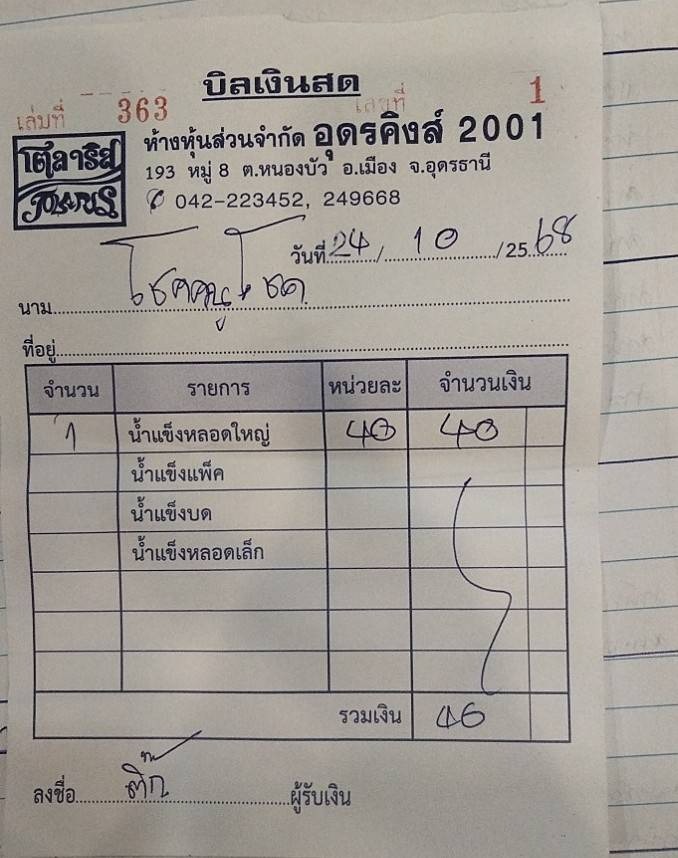 บิลเงินสด
เล่มที่ 363 เลขที่ 1
ห้างหุ้นส่วนจำกัด อุดรคิงส์ 2001
193 หมู่ 8 ต.หนองบัว อ.เมือง จ.อุดรธานี
042-223452, 249668
โพลาริส
POLARIS
วันที่ 24 / 10 / 2568
นาม
ที่อยู่
จำนวน รายการ หน่วยละ จำนวนเงิน
1 น้ำแข็งหลอดใหญ่ 40 40
น้ำแข็งแพ็ค
น้ำแข็งบด
น้ำแข็งหลอดเล็ก
รวมเงิน 40
ลงชื่อ ติ๊ก ผู้รับเงิน